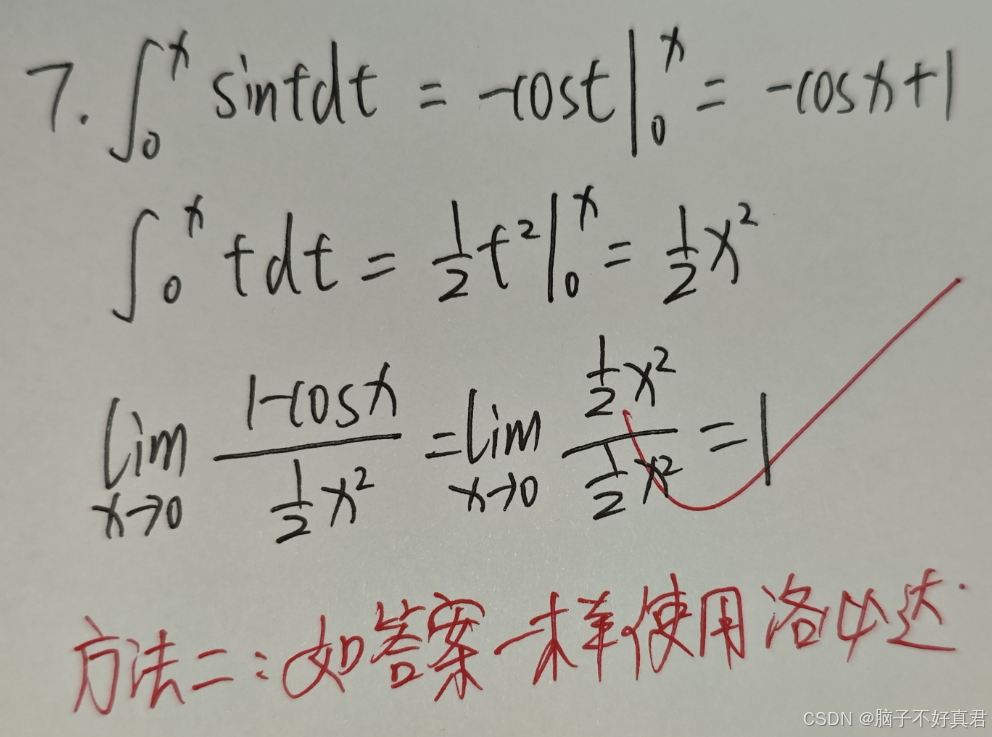 7. ∫₀ˣ sintdt = -cost|₀ˣ = -cosx+1
∫₀ˣ tdt = ½t²|₀ˣ = ½x²
lim x→0 (1-cosx)/(½x²) = lim x→0 (½x²)/(½x²) = 1
方法二：如答案一样使用洛必达.
CSDN @脑子不好真君